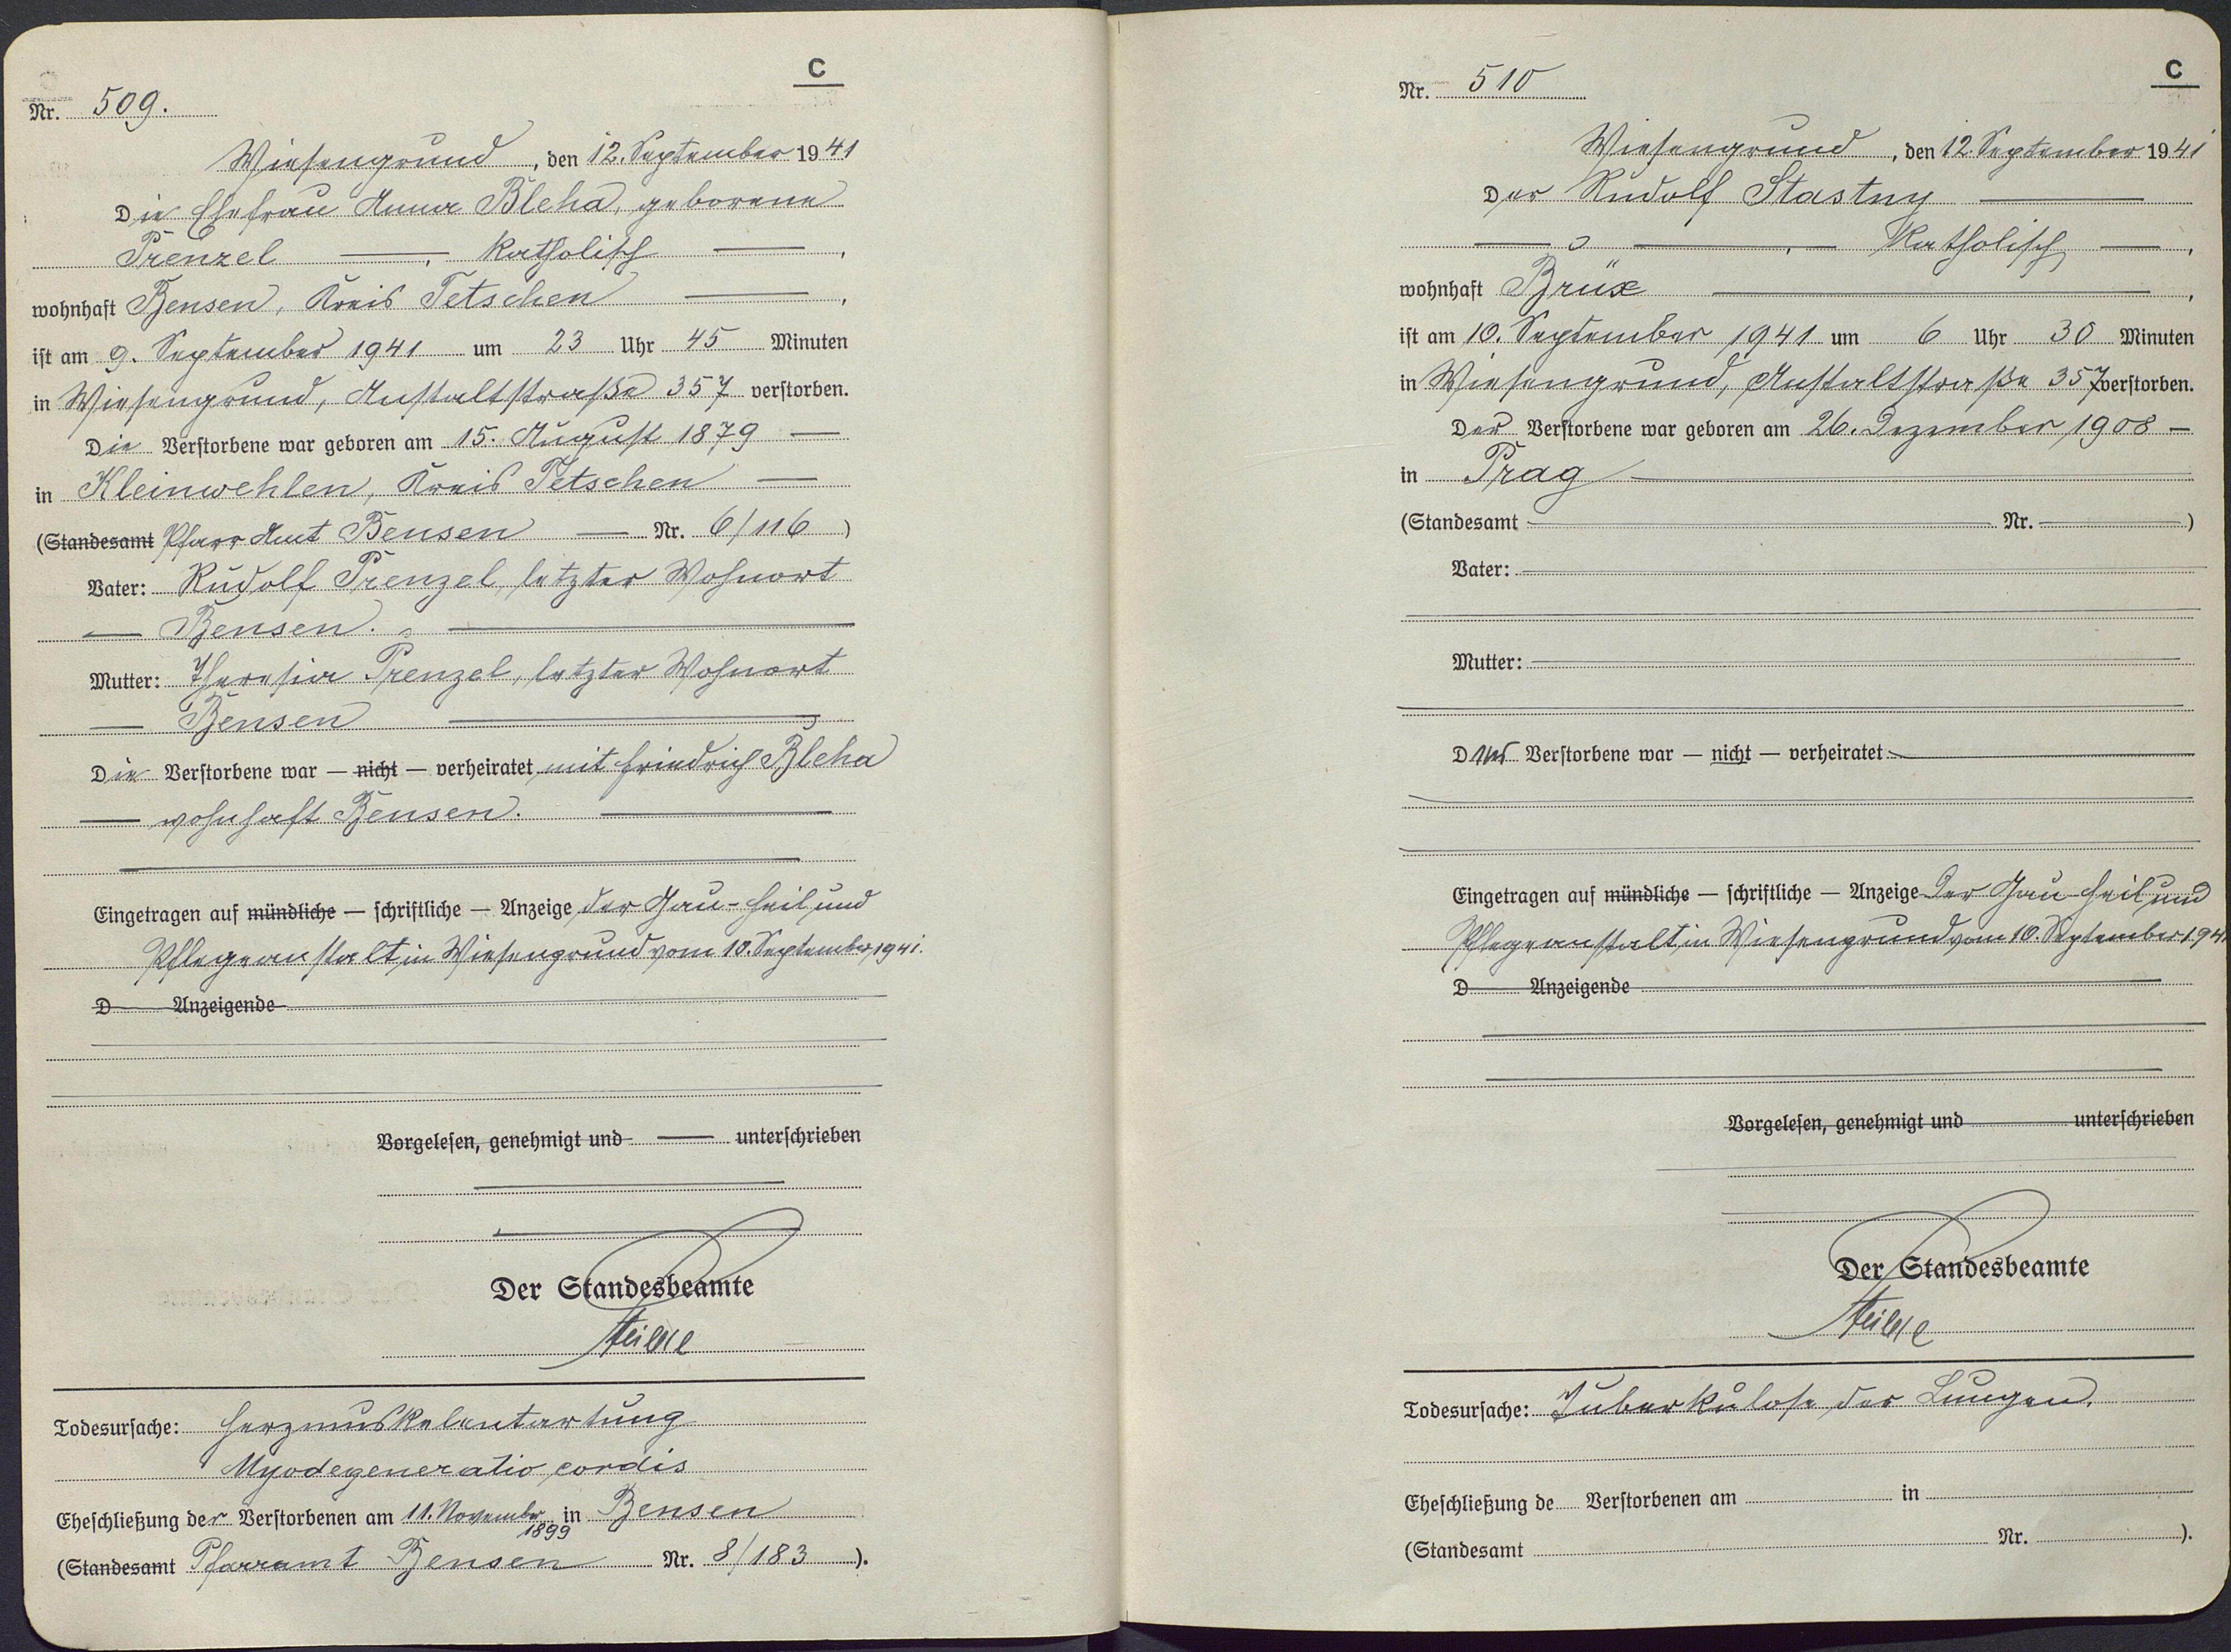 C
Nr. 509.
Wiesengrund, den 12. September 1941
Die Ehefrau Anna Bleha, geborene
Prenzel, katholisch,
wohnhaft Bensen, Kreis Tetschen,
ist am 9. September 1941 um 23 Uhr 45 Minuten
in Wiesengrund, Anstaltstraße 357 verstorben.
Die Verstorbene war geboren am 15. August 1879
in Kleinwehlen, Kreis Tetschen
(Standesamt Pfarr Amt Bensen Nr. 6/116)
Vater: Rudolf Prenzel, letzter Wohnort
Bensen.
Mutter: Theresia Prenzel, letzter Wohnort
Bensen
Die Verstorbene war — nicht — verheiratet mit Friedrich Bleha
wohnhaft Bensen.
Eingetragen auf mündliche — schriftliche — Anzeige der Gau-Heil und
Pflegeanstalt in Wiesengrund vom 10. September 1941.
D Anzeigende
Vorgelesen, genehmigt und unterschrieben
Der Standesbeamte
Todesursache: Herzmuskelentartung
Myodegeneratio cordis
Eheschließung der Verstorbenen am 11. November 1899 in Bensen
(Standesamt Pfarramt Bensen Nr. 8/183).
C
Nr. 510
Wiesengrund, den 12. September 1941
Der Rudolf Stastny
katholisch,
wohnhaft Brüx,
ist am 10. September 1941 um 6 Uhr 30 Minuten
in Wiesengrund, Anstaltstraße 357 verstorben.
Der Verstorbene war geboren am 26. Dezember 1908
in Prag
(Standesamt Nr. )
Vater:
Mutter:
Der Verstorbene war — nicht — verheiratet
Eingetragen auf mündliche — schriftliche — Anzeige der Gau-Heil und
Pflegeanstalt in Wiesengrund vom 10. September 1941
D Anzeigende
Vorgelesen, genehmigt und unterschrieben
Der Standesbeamte
Todesursache: Tuberkulose der Lungen.
Eheschließung de Verstorbenen am in
(Standesamt Nr. ).